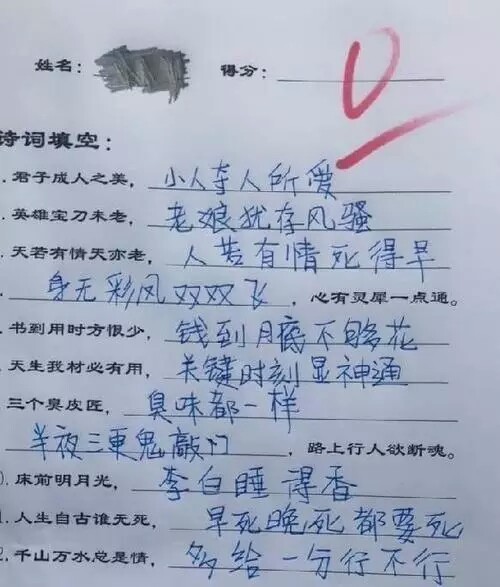 姓名: 得分: 0
诗词填空:
. 君子成人之美, 小人夺人所爱
. 英雄宝刀未老, 老娘犹存风骚
. 天若有情天亦老, 人若有情死得早
身无彩凤双双飞, 心有灵犀一点通。
. 书到用时方恨少, 钱到月底不够花
. 天生我材必有用, 关键时刻显神通
. 三个臭皮匠, 臭味都一样
半夜三更鬼敲门, 路上行人欲断魂。
). 床前明月光, 李白睡得香
1. 人生自古谁无死, 早死晚死都要死
2. 千山万水总是情, 多给一分行不行